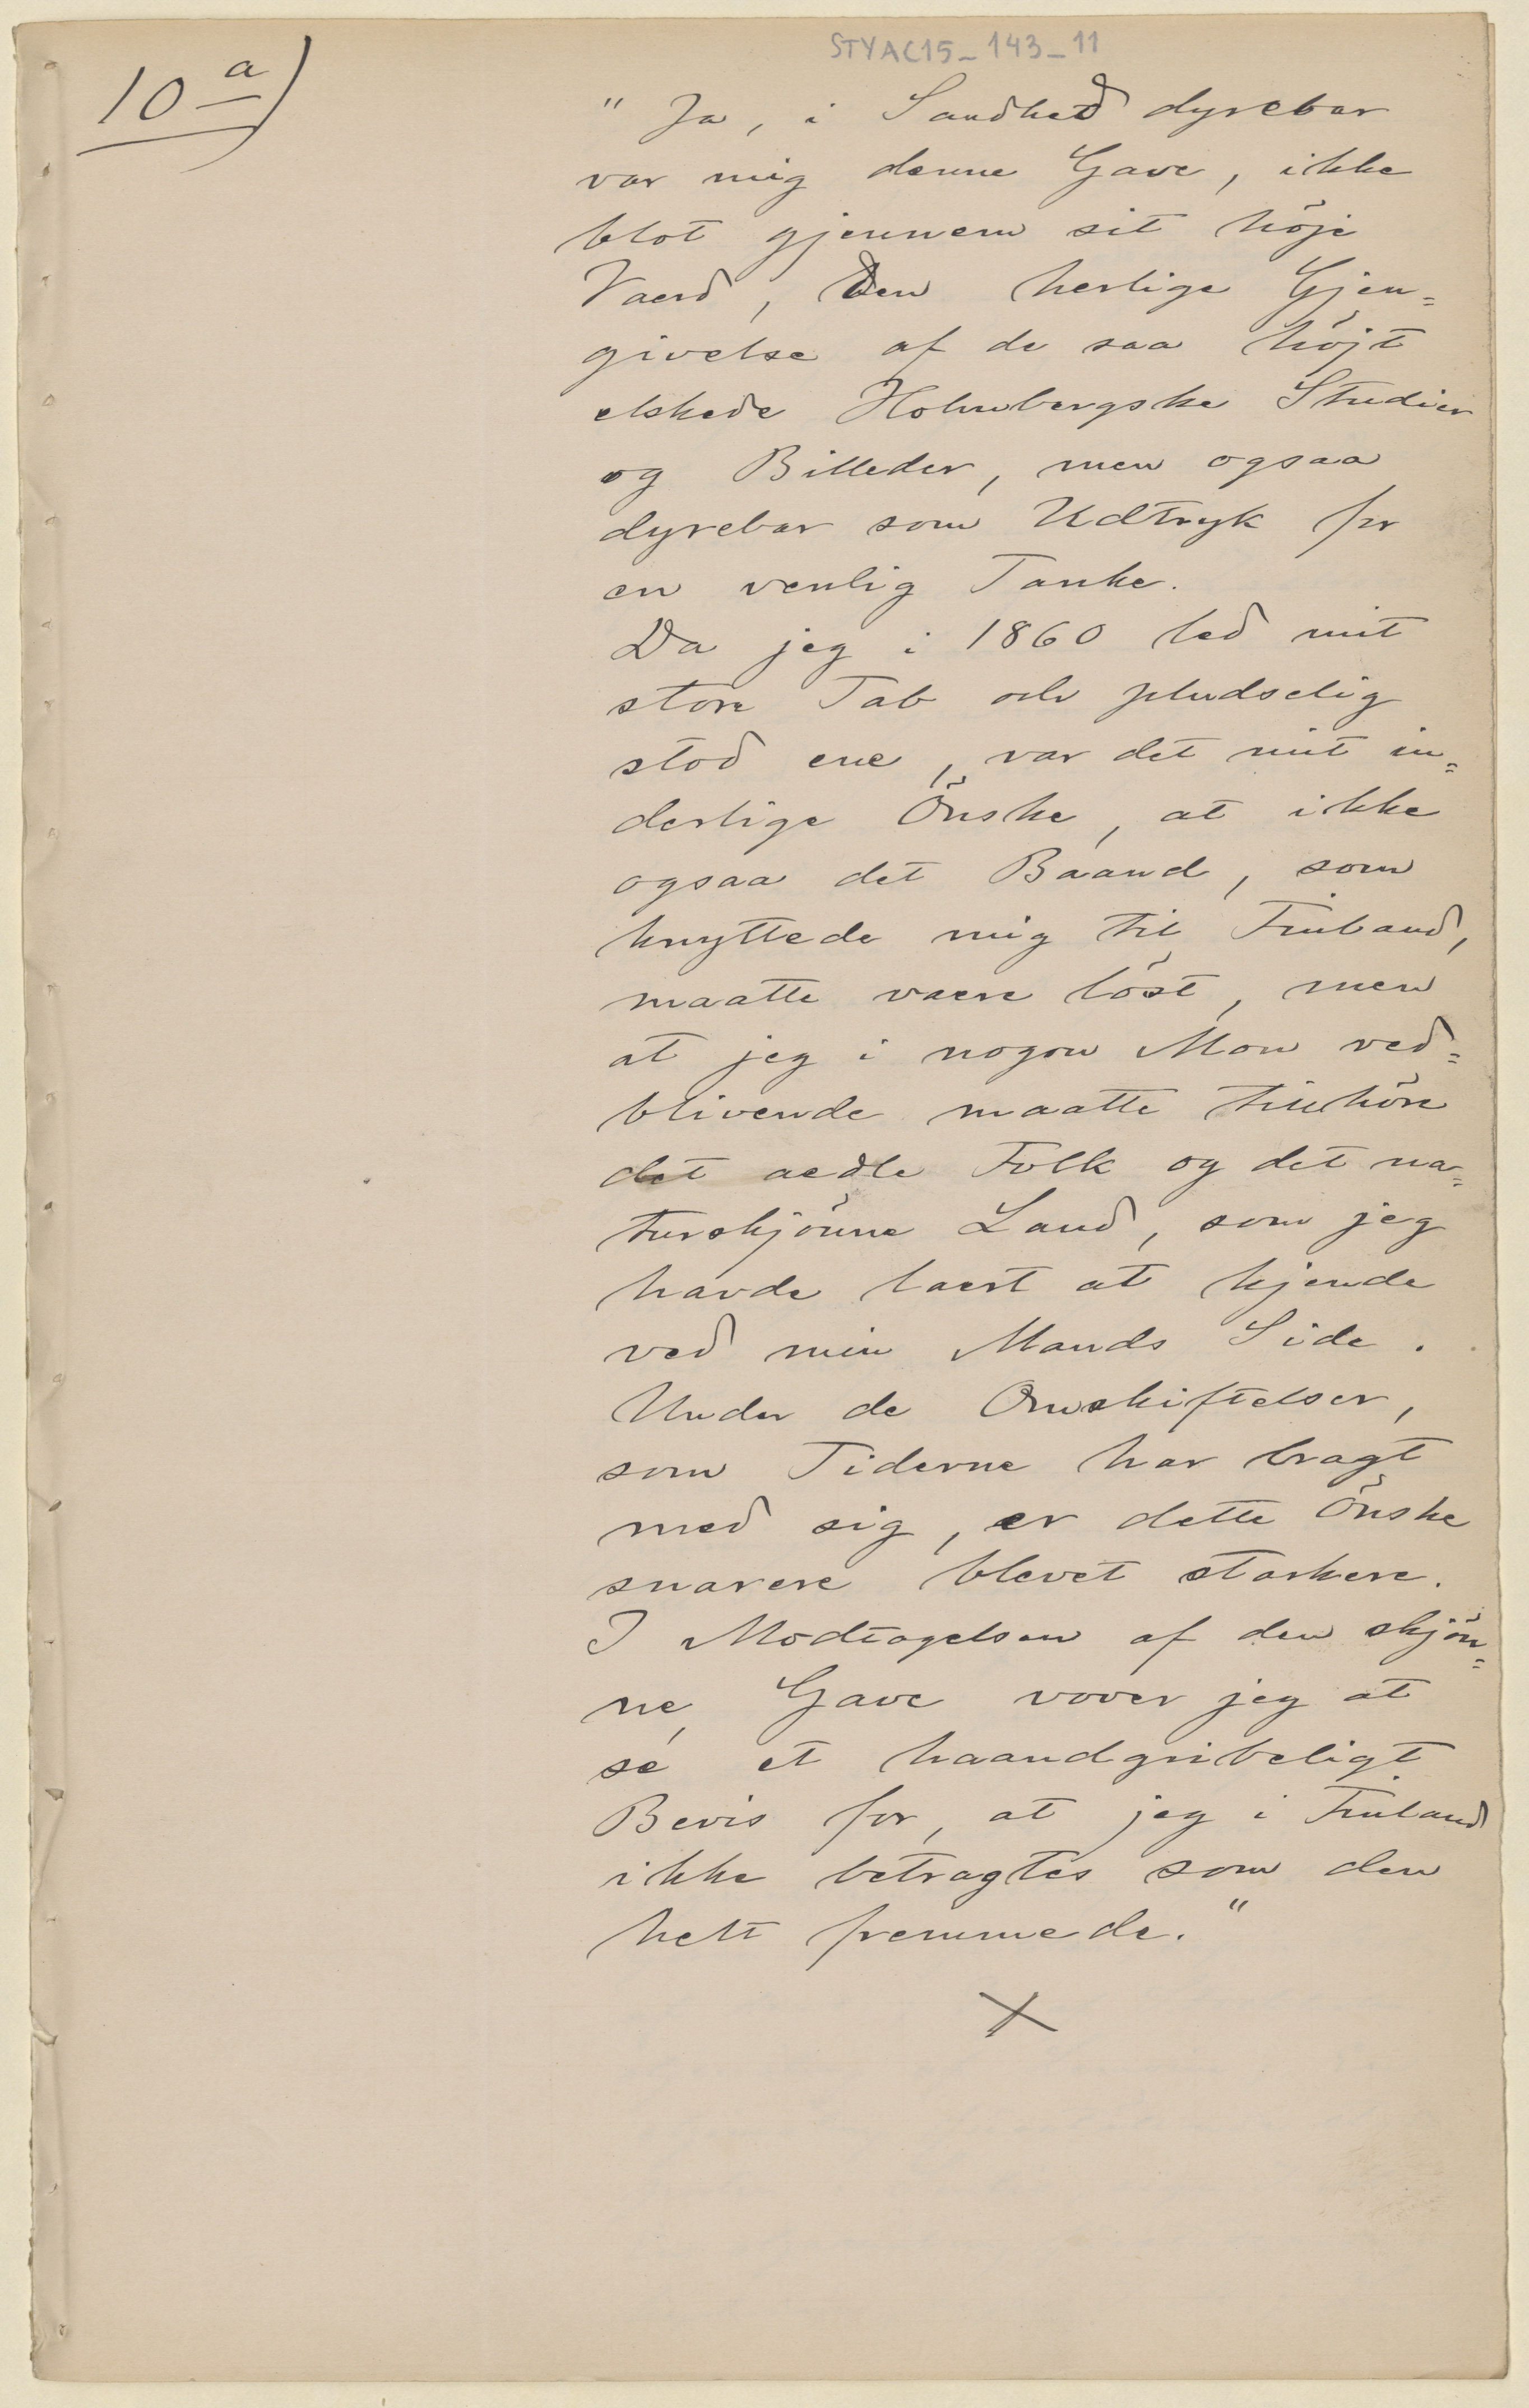 STYAC15_143_11
10 a)
" Ja, i Sandhed dyrebar
var mig denne Gave, ikke
blot gjennem sit höje
Vaerd, Den herlige Gjen=
givelse af de saa höjt
elskede Holmbergske Studier
og Billeder, men ogsaa
dyrebar som Udtryk for
en venlig Tanke.
Da jeg i 1860 led mit
store Tab och pludselig
stod ene, var det mit in=
derlige Önske, at ikke
ogsaa det Baand, som
knyttede mig til Finland,
maatte vaere löst, men
at jeg i nogen Mon ved=
blivende maatte tilhöre
det aedle Folk og det na=
turskjönne Land, som jeg
havde laert at kjende
ved min Mands Side.
Under de Omskiftelser,
som Tiderne har bragt
med sig, er dette Önske
snarere blevet starkere.
I Modtagelsen af den skjön=
ne Gave vover jeg at
sé et haandgribeligt
Bevis for, at jeg i Finland
ikke betragtes som den
helt fremmede."